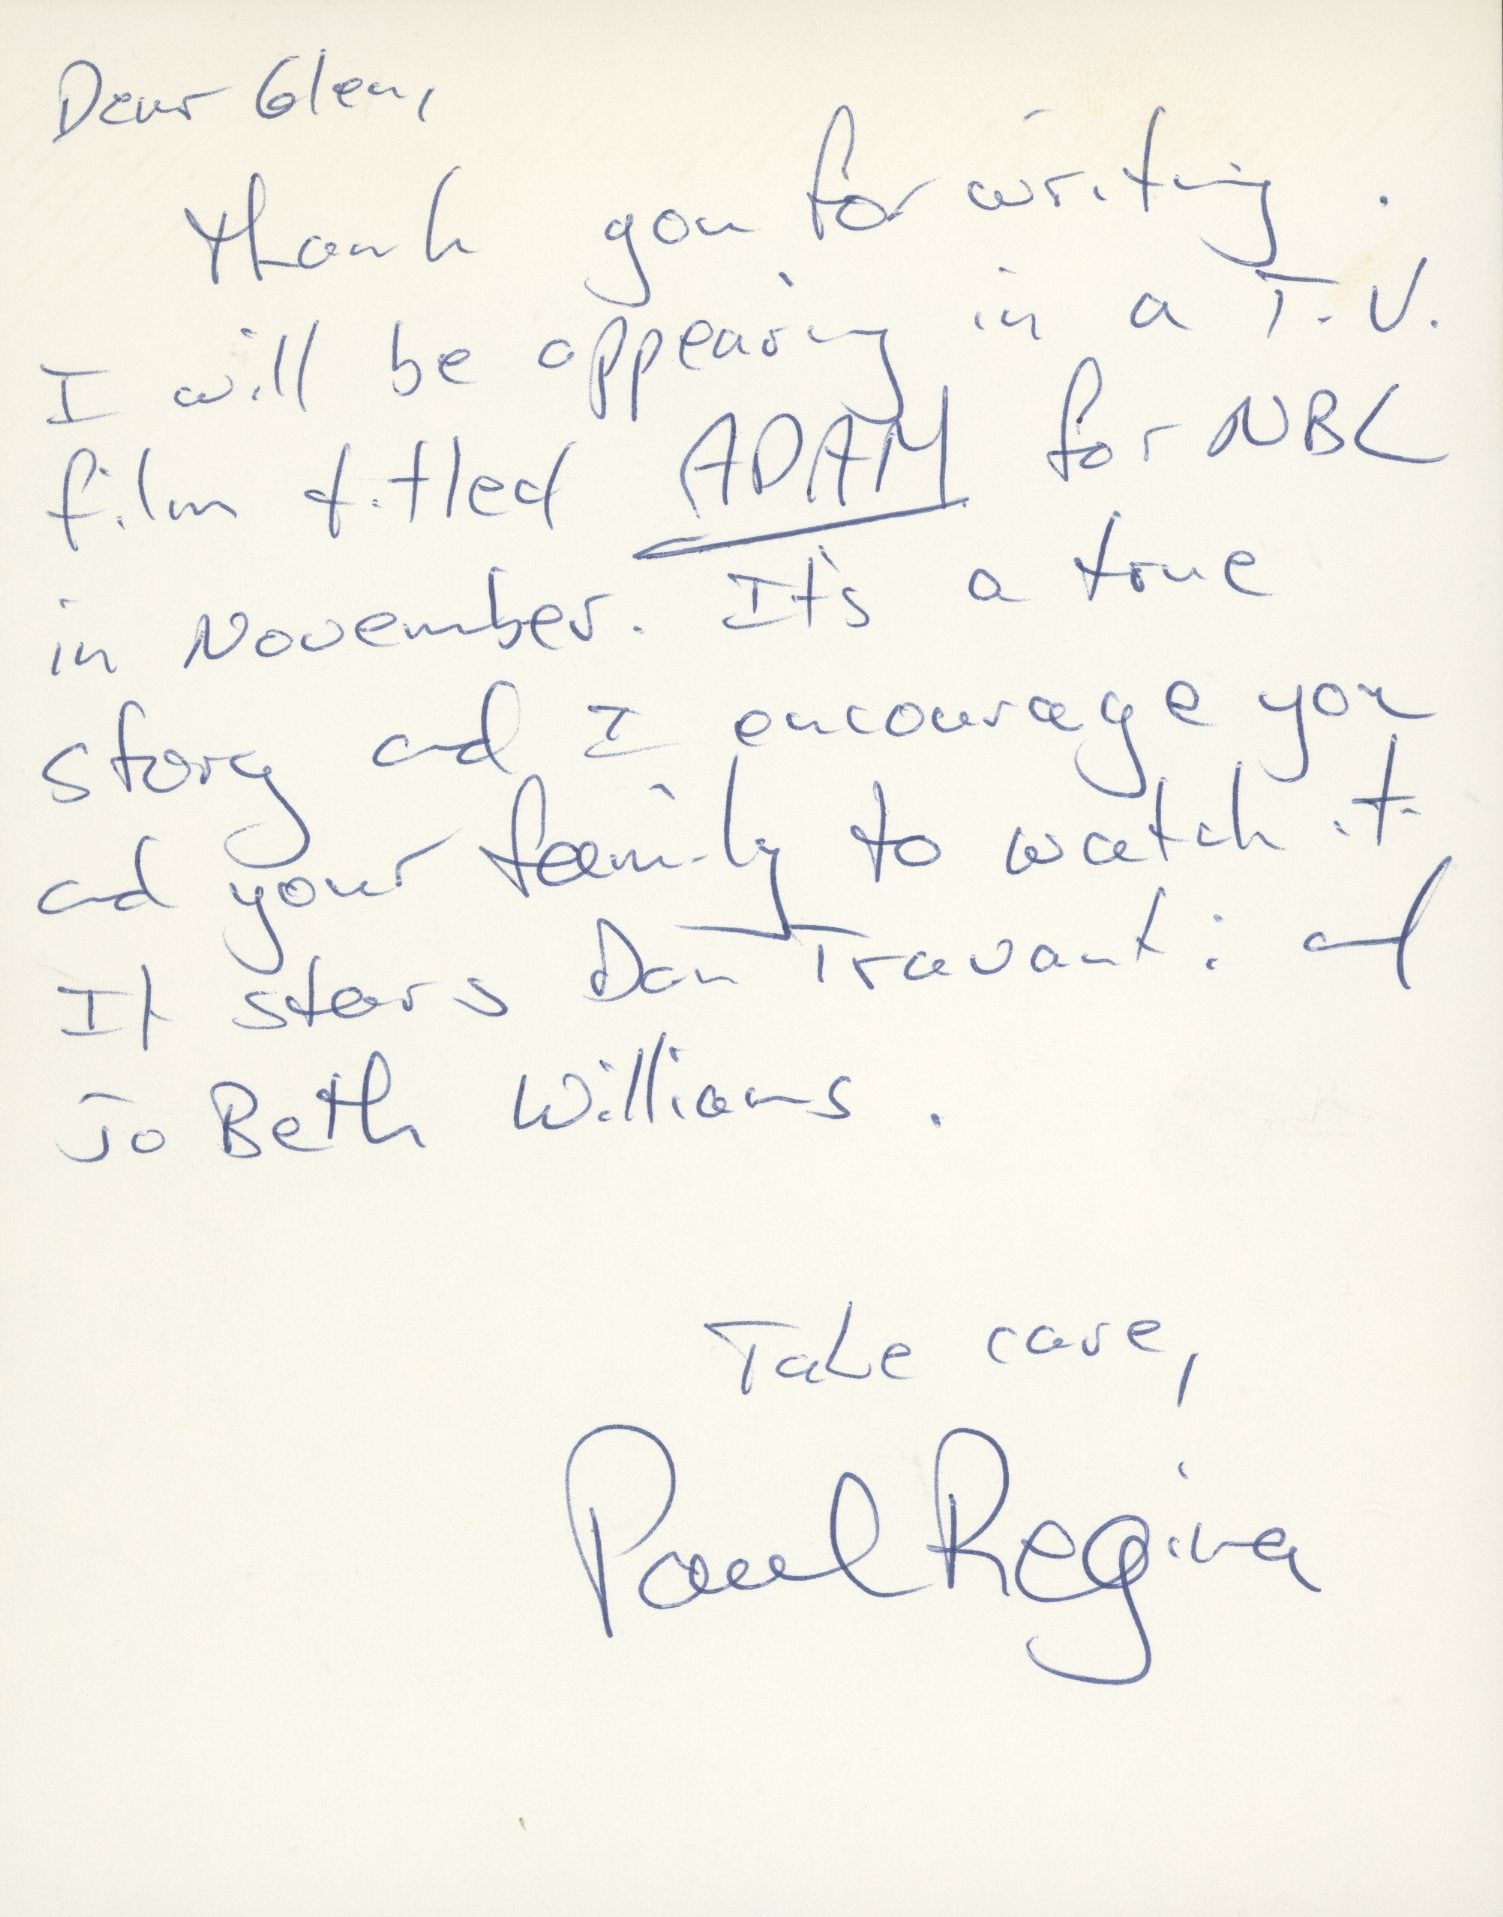 Dear Glen,
Thank you for writing.
I will be appearing in a T.V.
film titled ADAM for NBC
in November. It's a true
story and I encourage you
and your family to watch it.
It stars Dan Travanti and
Jo Beth Williams.
Take care,
Paul Regina